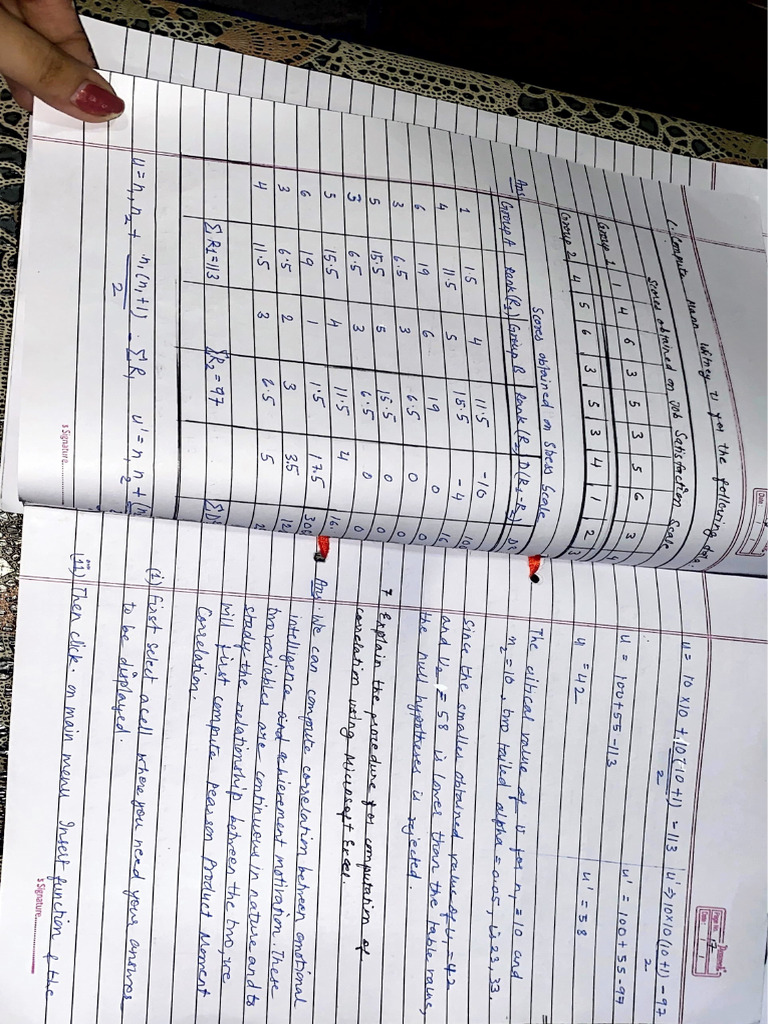 6. Compute Mann Whitney U for the following data
Scores obtained on Job Satisfaction Scale
Group 1 1 4 6 3 5 3 5 6 3
Group 2 4 5 6 3 5 3 4 1 2 3
Scores obtained on Stress Scale
Ans Group A Rank (R1) Group B Rank (R2) D(R1-R2) D2
1 1.5 4 11.5 -10
4 11.5 5 15.5 -4
6 19 6 19 0 0
3 6.5 3 6.5 0 0
5 15.5 5 15.5 0 0
3 6.5 3 6.5 0 0
5 15.5 4 11.5 4 16.
6 19 1 1.5 17.5
3 6.5 2 3 3.5
4 11.5 3 6.5 5
∑R1=113 ∑R2=97
U = n1n2 + n1(n1+1)/2 - ∑R1
s Signature
U = 10×10 + 10(10+1)/2 - 113 U' = 10×10 (10+1)/2 - 97
U = 100+55-113 U' = 100+55-97
U = 42 U' = 58
The critical value of U for n1 = 10 and
n2 = 10, two tailed alpha = 0.05, is 23, 33.
Since the smaller obtained value of U1 = 42
and U2 = 58 is lower than the table value,
the null hypotheses is rejected.
7 Explain the procedure for computation of
correlation using Microsoft Excel.
Ans. We can compute correlation between emotional
intelligence and achievement motivation. These
two variables are continuous in nature and to
study the relationship between the two, we
will first compute Pearson Product Moment
Correlation.
(i) First select a cell where you need your answer
to be displayed.
(ii) Then click on main menu Insert function & the
s Signature